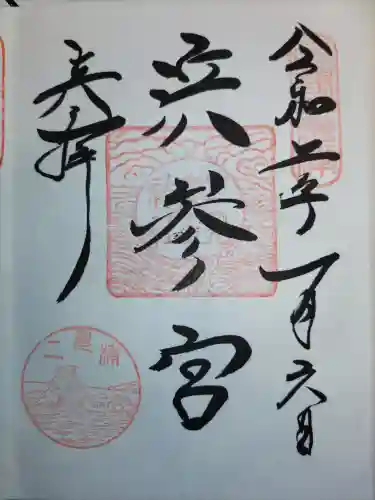 奉拝
参宮
令和年
一月六日
二見浦